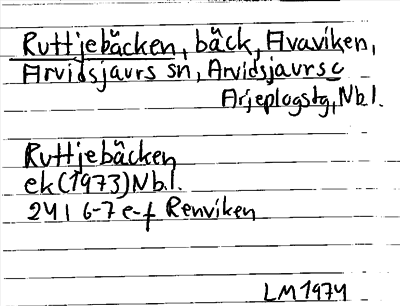 Ruttjebäcken, bäck, Avaviken,
Arvidsjaurs sn, Arvidsjaurs c
Arjeplogstg, Nb.l.
Ruttjebäcken
ek (1973) Nb.l.
24 I 6-7 e-f Renviken
LM 1974